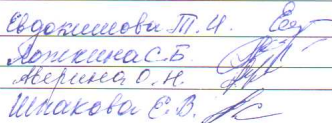 Евдокимова Т. И.
Ложкина С. Б.
Аверина О. Н.
Шпакова Е. В.